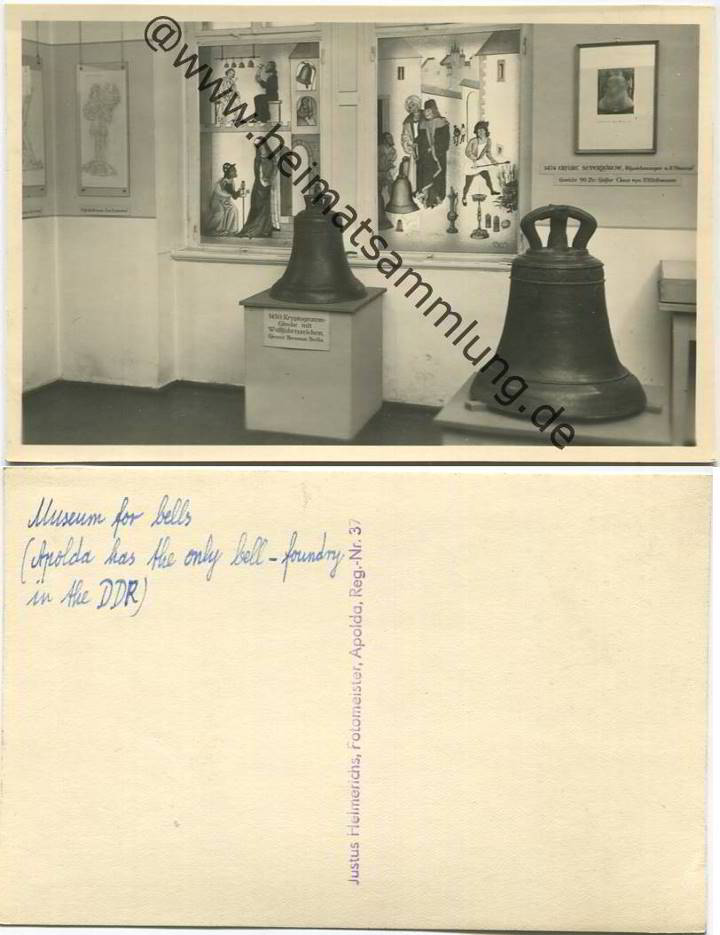 @www.heimatsammlung.de
1474 ERFURT SEVERIKIRCHE,
Gewicht 90 Ztr. Gießer Claus von Mühlhausen
1450 Kryptogramm-
Glocke mit
Wallfahrtszeichen.
Museum for bells
(Apolda has the only bell-foundry
in the DDR)
Justus Helmerichs, Fotomeister, Apolda, Reg.-Nr. 37